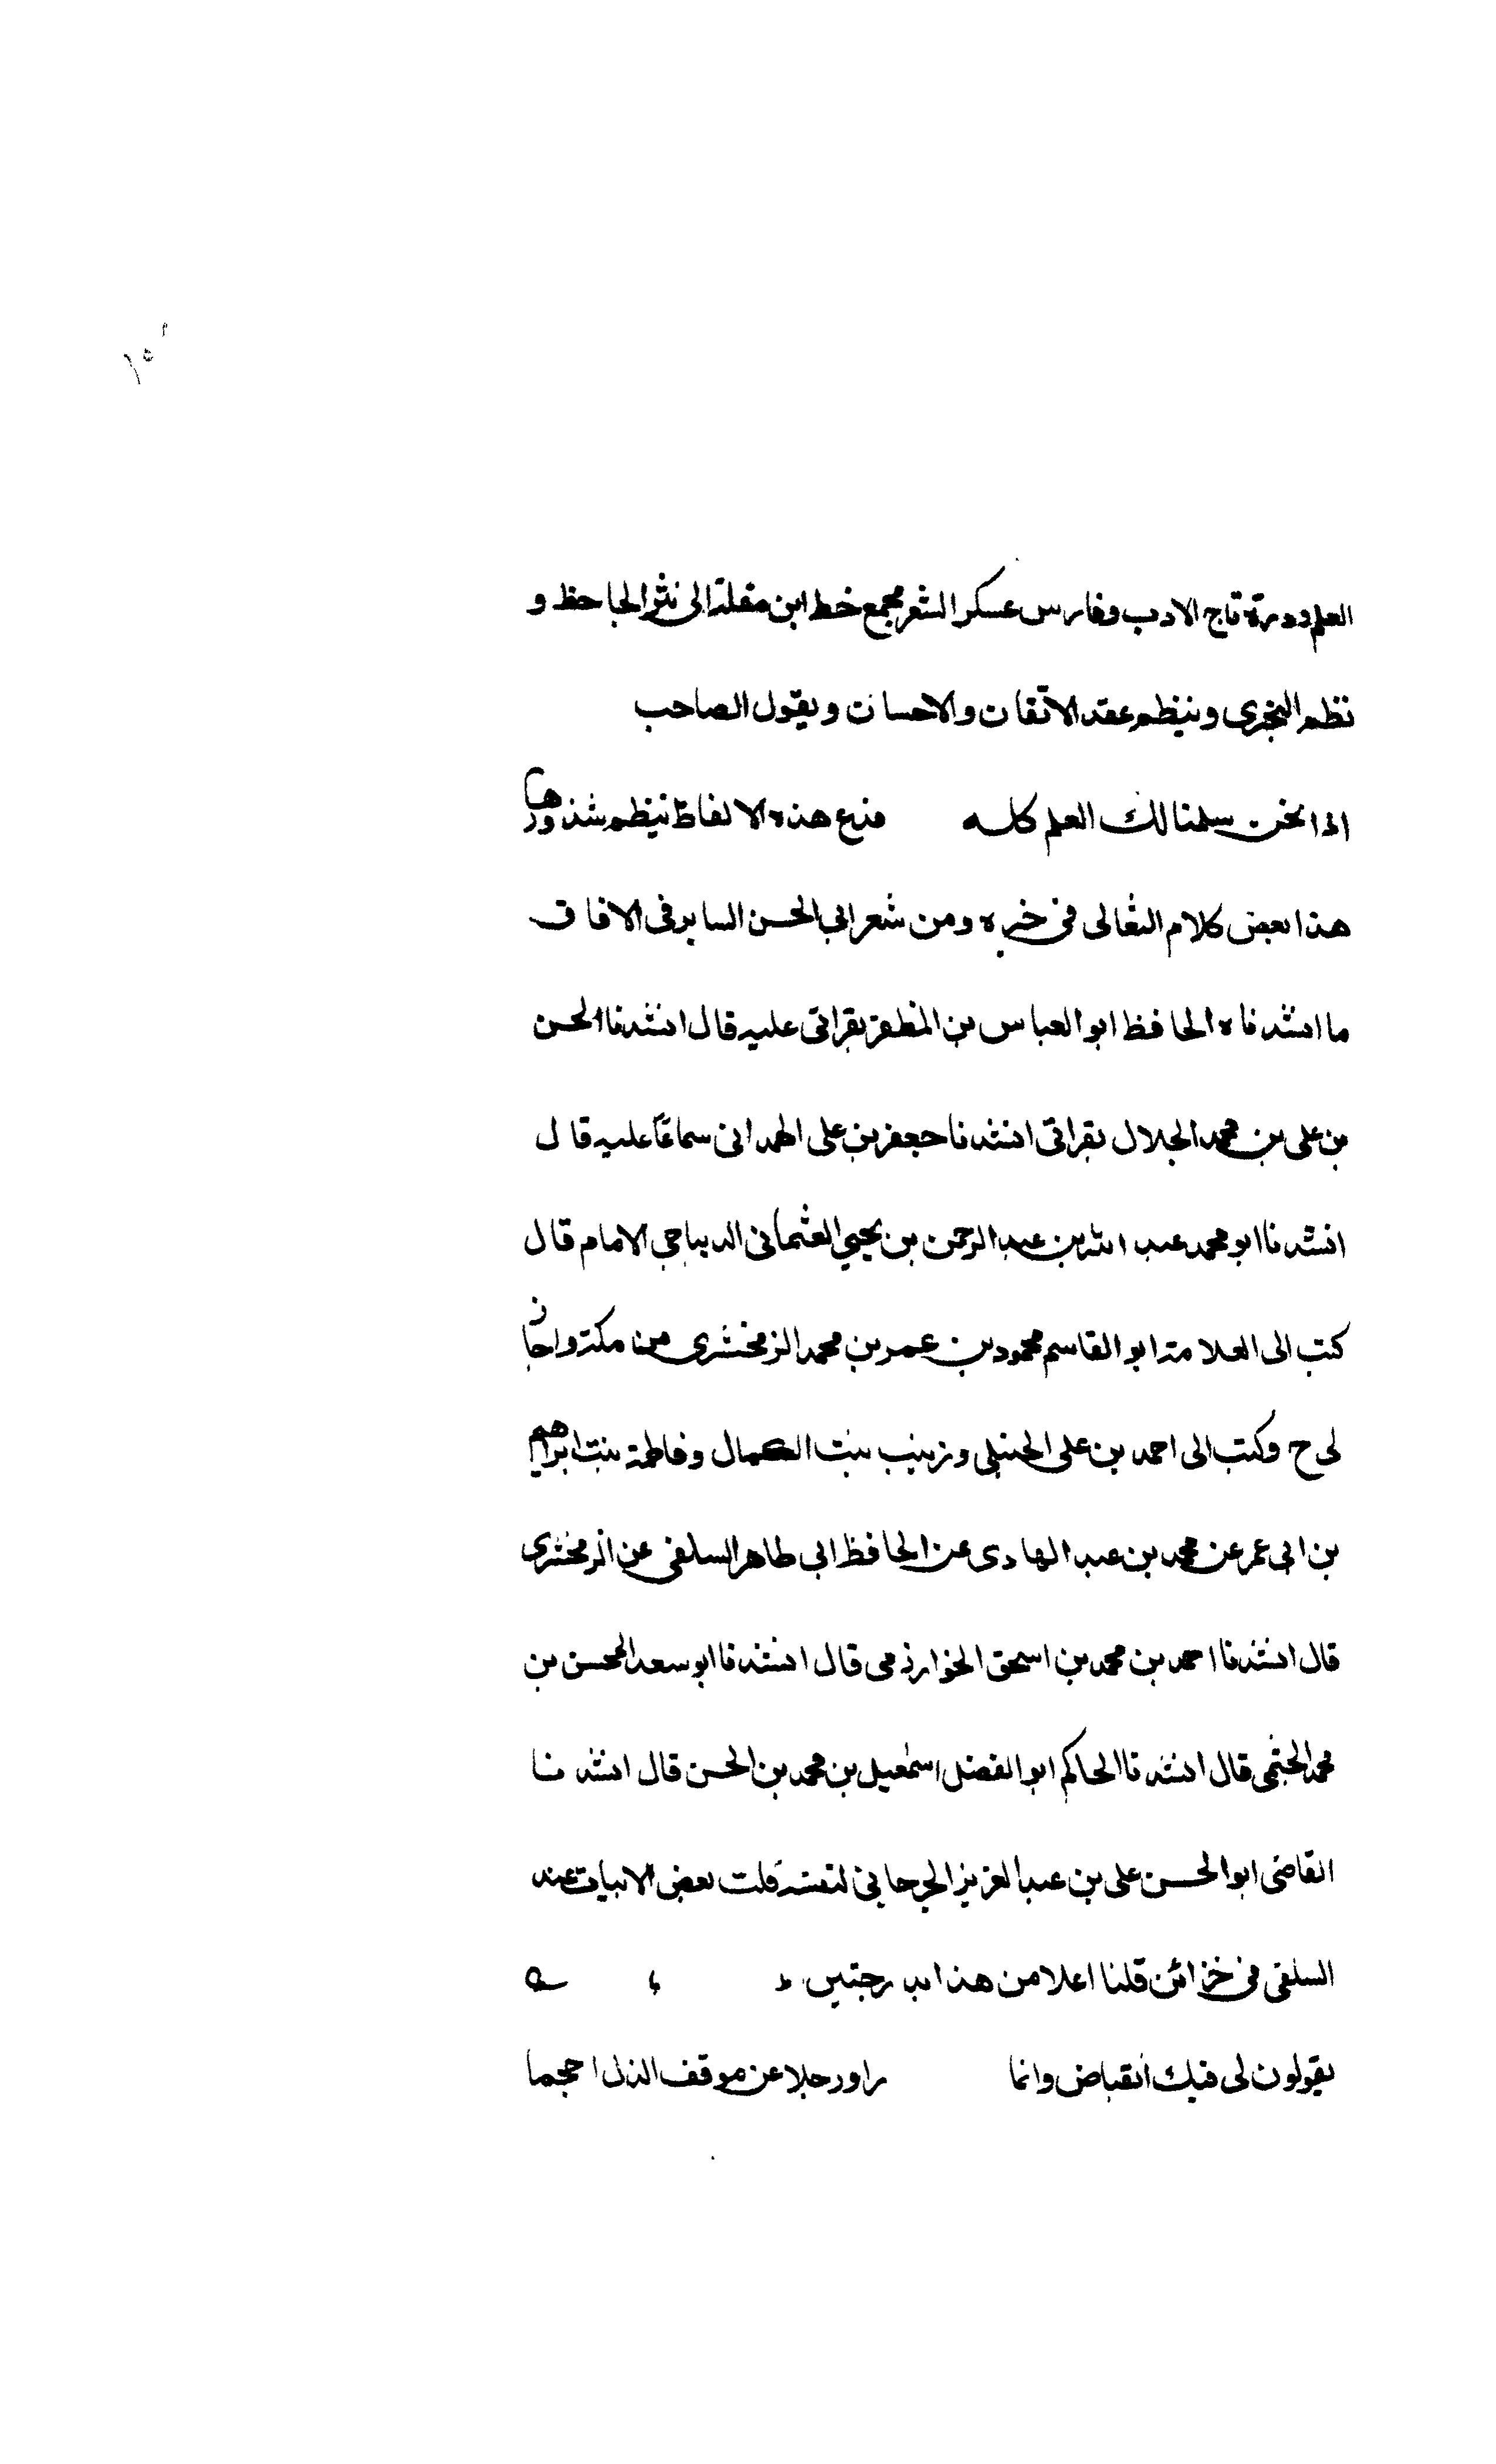 العلم ودرة تاج الادب وفارس عسكر الشعر مجمع خط ابن مقلة الى نثر الجاحظ و
نظم البحترى وينظم عقد الاتقان والاحسان ويقول الصاحب
اذا نحن سلمنا لك العلم كله فدع هذه الالفاظ ننظم شذورها
هذا بعض كلام الثعالى فى خبره ومن شعر ابى الحسن الساير فى الافاق
ما انشدناه الحافظ ابو العباس بن المظفر بقراتى عليه قال انشدنا الحسن
بن على بن محمد الجلال بقراتى انشدنا جعفر بن على الهمدانى سماعا عليه قال
انشدنا ابو محمد عبد الله بن عبد الرحمن بن يحيى العثمانى الديباجى الامام قال
كتب الى العلامة ابو القاسم محمود بن عمر بن محمد الزمخشرى من مكة واجاز
لى ح وكتب الى احمد بن على الحنبلى وزينب بنت الكمال وفاطمة بنت ابراهيم
بن ابى عمر عن محمد بن عبد الهادى عن الحافظ ابى طاهر السلفى عن الزمخشرى
قال انشدنا احمد بن محمد بن اسحق الخوارزمى قال انشدنا ابو سعد المحسن بن
محمد الجثمى قال انشدنا الحاكم ابو الفضل اسمعيل بن محمد بن الحسن قال انشدنا
القاضى ابو الحسن على بن عبد العزيز الجرجانى لنفسه قلت بعض الابيات عند
السلفى فى خزائن قلنا اعلا من هذا بدرجتين
يقولون لى فيك انقباض وانما راو رجلا عن موقف الذل احجما